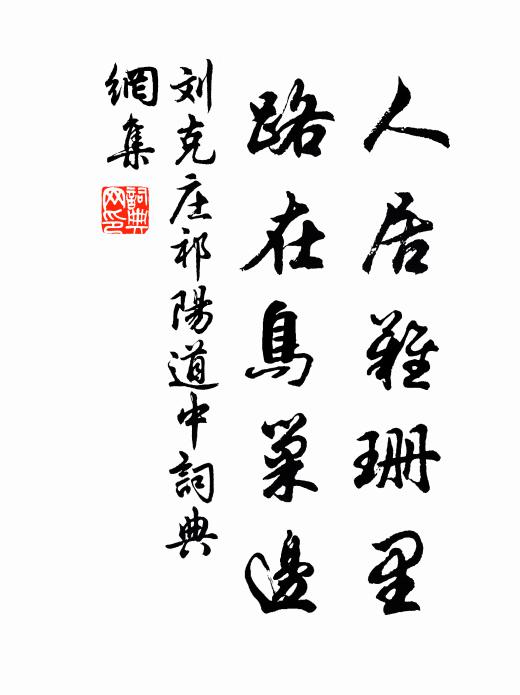 人居雞珊里
路在鳥巢邊
刘克庄祁陽道中詞典
網集
詞典
网印